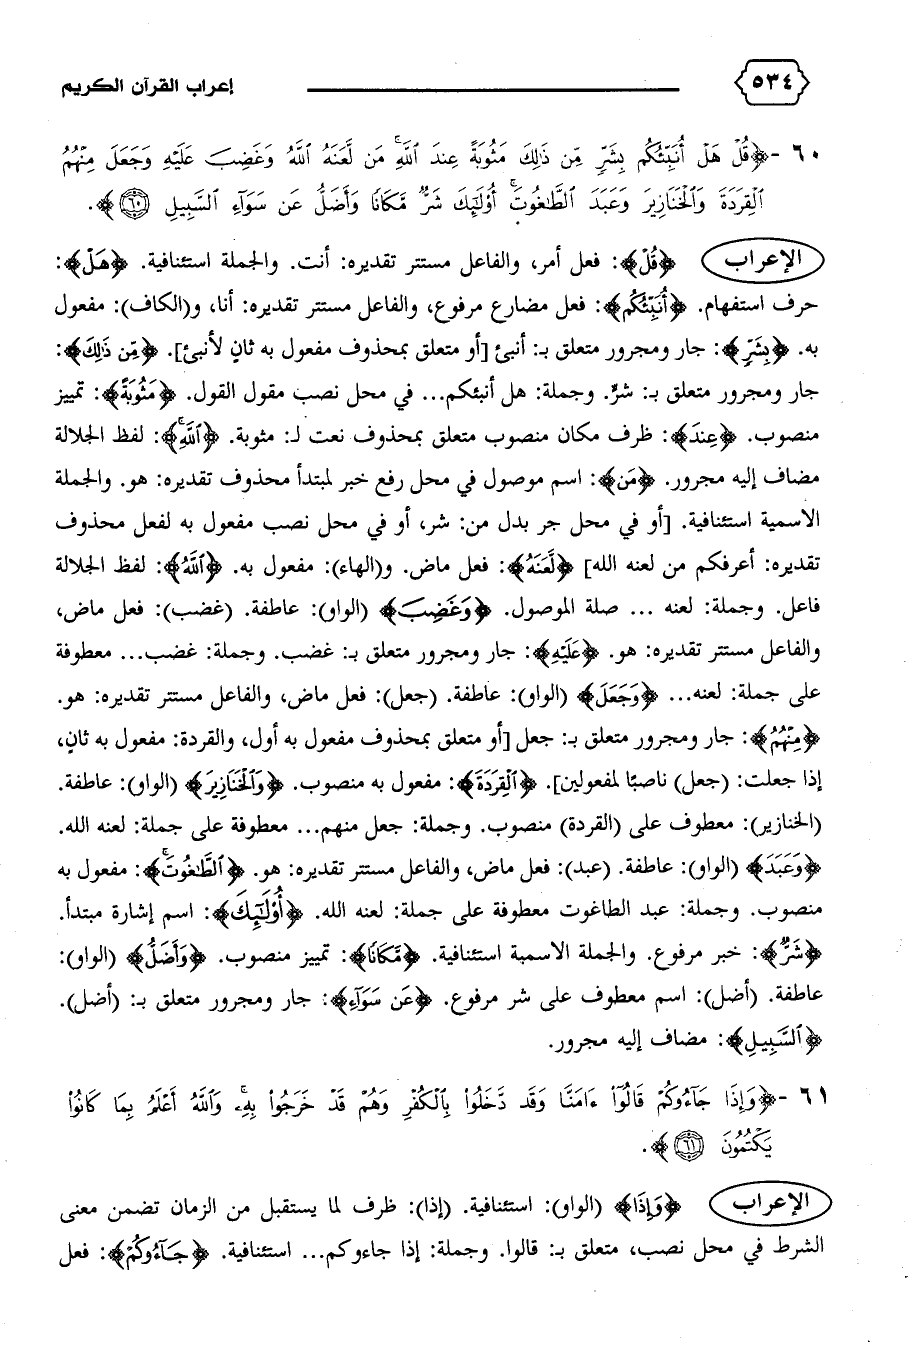 ٥٣٤ إعراب القرآن الكريم
٦٠ -﴿قُلْ هَلْ أُنَبِّئُكُم بِشَرٍّ مِّن ذَٰلِكَ مَثُوبَةً عِندَ ٱللَّهِ ۚ مَن لَّعَنَهُ ٱللَّهُ وَغَضِبَ عَلَيْهِ وَجَعَلَ مِنْهُمُ
ٱلْقِرَدَةَ وَٱلْخَنَازِيرَ وَعَبَدَ ٱلطَّـٰغُوتَ ۚ أُو۟لَـٰٓئِكَ شَرٌّ مَّكَانًا وَأَضَلُّ عَن سَوَآءِ ٱلسَّبِيلِ ﴿٦٠﴾﴾.
الإعراب ﴿قُلْ﴾: فعل أمر، والفاعل مستتر تقديره: أنت. والجملة استئنافية. ﴿هَلْ﴾:
حرف استفهام. ﴿أُنَبِّئُكُم﴾: فعل مضارع مرفوع، والفاعل مستتر تقديره: أنا، و(الكاف): مفعول
به. ﴿بِشَرٍّ﴾: جار ومجرور متعلق بـ: أنبئ [أو متعلق بمحذوف مفعول به ثانٍ لأنبئ]. ﴿مِّن ذَٰلِكَ﴾:
جار ومجرور متعلق بـ: شرٍّ. وجملة: هل أنبئكم... في محل نصب مقول القول. ﴿مَثُوبَةً﴾: تمييز
منصوب. ﴿عِندَ﴾: ظرف مكان منصوب متعلق بمحذوف نعت لـ: مثوبة. ﴿ٱللَّهِ ۚ﴾: لفظ الجلالة
مضاف إليه مجرور. ﴿مَن﴾: اسم موصول في محل رفع خبر لمبتدأ محذوف تقديره: هو. والجملة
الاسمية استئنافية. [أو في محل جر بدل من: شر، أو في محل نصب مفعول به لفعل محذوف
تقديره: أعرفكم من لعنه الله] ﴿لَّعَنَهُ﴾: فعل ماض. و(الهاء): مفعول به. ﴿ٱللَّهُ﴾: لفظ الجلالة
فاعل. وجملة: لعنه ... صلة الموصول. ﴿وَغَضِبَ﴾ (الواو): عاطفة. (غضب): فعل ماض،
والفاعل مستتر تقديره: هو. ﴿عَلَيْهِ﴾: جار ومجرور متعلق بـ: غضب. وجملة: غضب... معطوفة
على جملة: لعنه... ﴿وَجَعَلَ﴾ (الواو): عاطفة. (جعل): فعل ماض، والفاعل مستتر تقديره: هو.
﴿مِنْهُمُ﴾: جار ومجرور متعلق بـ: جعل [أو متعلق بمحذوف مفعول به أول، والقردة: مفعول به ثان،
إذا جعلت: (جعل) ناصبًا لمفعولين]. ﴿ٱلْقِرَدَةَ﴾: مفعول به منصوب. ﴿وَٱلْخَنَازِيرَ﴾ (الواو): عاطفة.
(الخنازير): معطوف على (القردة) منصوب. وجملة: جعل منهم... معطوفة على جملة: لعنه الله.
﴿وَعَبَدَ﴾ (الواو): عاطفة. (عبد): فعل ماض، والفاعل مستتر تقديره: هو. ﴿ٱلطَّـٰغُوتَ ۚ﴾: مفعول به
منصوب. وجملة: عبد الطاغوت معطوفة على جملة: لعنه الله. ﴿أُو۟لَـٰٓئِكَ﴾: اسم إشارة مبتدأ.
﴿شَرٌّ﴾: خبر مرفوع. والجملة الاسمية استئنافية. ﴿مَّكَانًا﴾: تمييز منصوب. ﴿وَأَضَلُّ﴾ (الواو):
عاطفة. (أضل): اسم معطوف على شر مرفوع. ﴿عَن سَوَآءِ﴾: جار ومجرور متعلق بـ: (أضل).
﴿ٱلسَّبِيلِ﴾: مضاف إليه مجرور.
٦١ -﴿وَإِذَا جَآءُوكُمْ قَالُوٓا۟ ءَامَنَّا وَقَد دَّخَلُوا۟ بِٱلْكُفْرِ وَهُمْ قَدْ خَرَجُوا۟ بِهِۦ ۚ وَٱللَّهُ أَعْلَمُ بِمَا كَانُوا۟
يَكْتُمُونَ ﴿٦١﴾﴾.
الإعراب ﴿وَإِذَا﴾ (الواو): استئنافية. (إذا): ظرف لما يستقبل من الزمان تضمن معنى
الشرط في محل نصب، متعلق بـ: قالوا. وجملة: إذا جاءوكم... استئنافية. ﴿جَآءُوكُمْ﴾: فعل